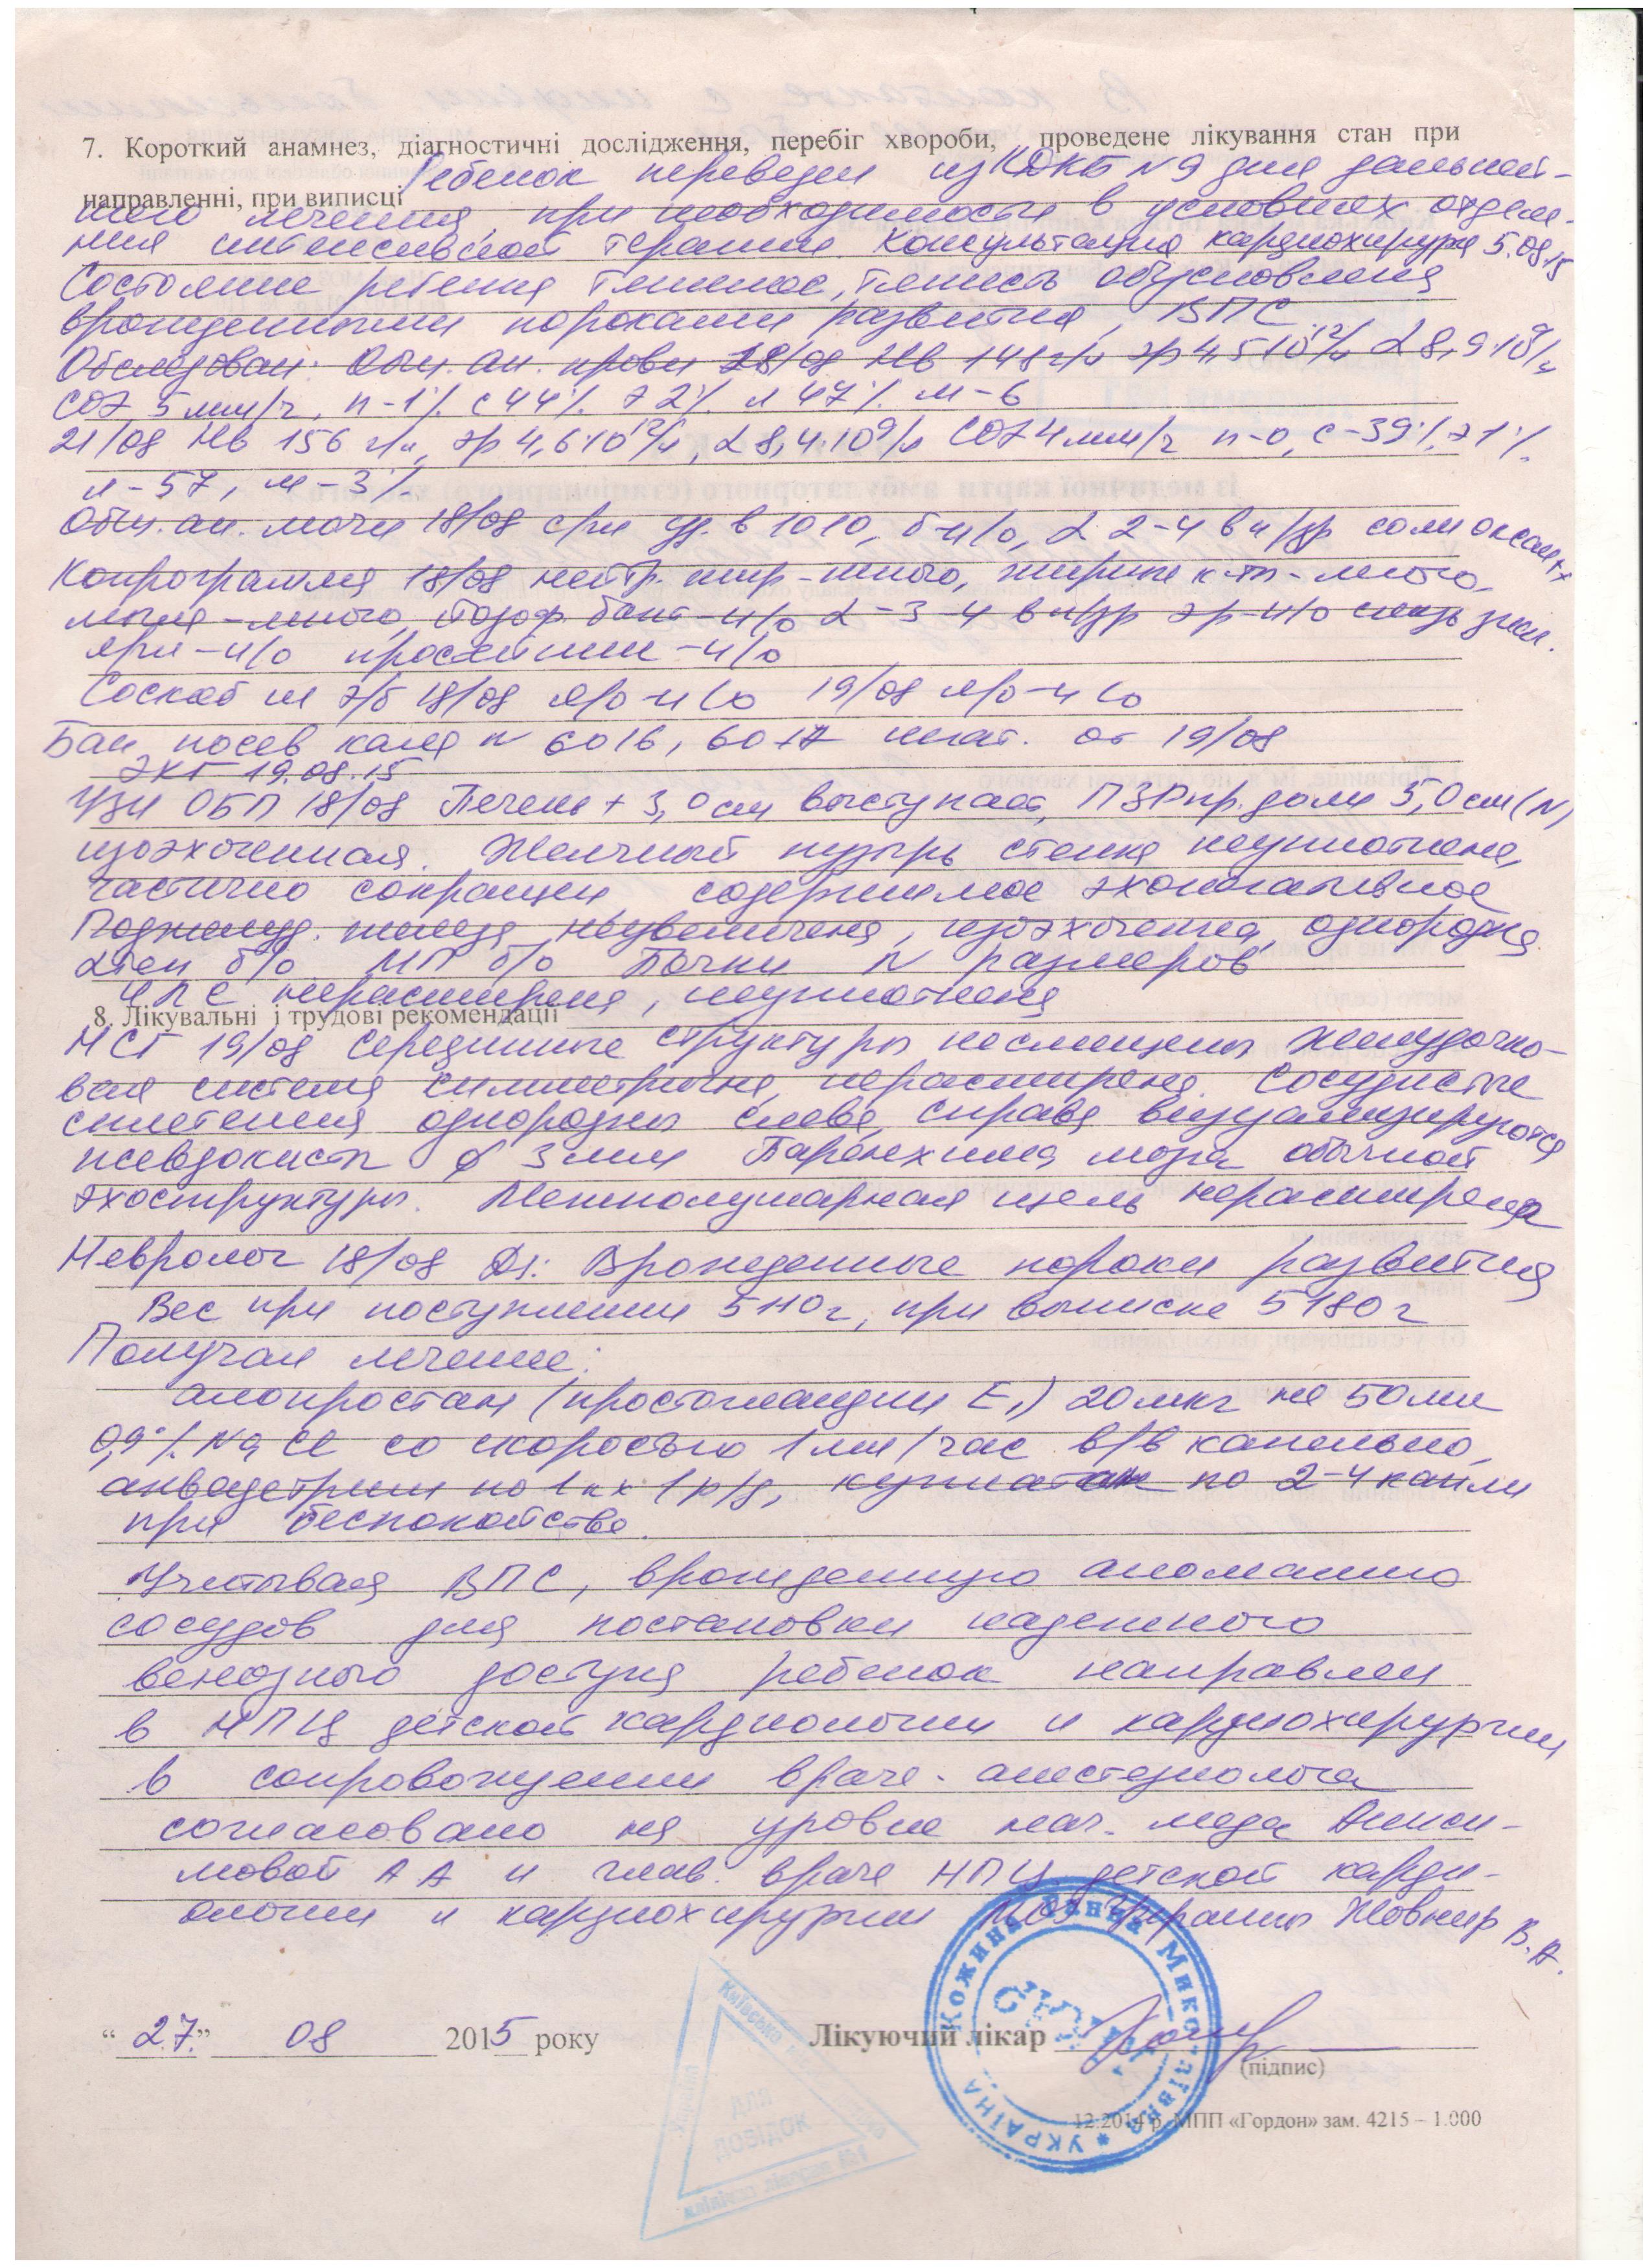 7. Короткий анамнез, діагностичні дослідження, перебіг хвороби, проведене лікування стан при
направленні, при виписці Ребенок переведен из КДКБ №9 для дальней-
шего лечения, при необходимости в условиях отделе-
ния интенсивной терапии. Консультация кардиохирурга 5.08.15
Состояние ребенка тяжелое, тяжесть обусловлена
врожденными пороками развития, ВПС
Обследован: Общ. ан. крови 18/08 Нв 148 г/л эр 4,5·10¹²/л L 8,9·10⁹/л
СОЭ 5 мм/ч, п-1% с 44% э 2% л 47% м-6
21/08 Нв 156 г/л, эр 4,6·10¹²/л, L 8,4·10⁹/л СОЭ 4 мм/ч п-0, с-39% э 1%
л-57, м-3%
Общ. ан. мочи 18/08 с/ж уд. в 1010, б-н/о, L 2-4 в п/зр соли оксал++
Копрограмма 18/08 нейтр. жир-много, жирные к-ты-много,
мыла-много, йодоф. бакт-н/о L-3-4 в п/зр эр-н/о слизь знач.
я/гл-н/о простейшие-н/о
Соскоб на э/б 18/08 я/о-н/о 19/08 я/о-н/о
Бак. посев кала № 6016, 6017 от 19/08
ЭКГ 19.08.15
УЗИ ОБП 18/08 Печень + 3,0 см выступает, ПЗР пр. доли 5,0 см (N)
изоэхогенная. Желчный пузырь стенка неуплотнена,
частично сокращен содержимое эхонегативное
Поджелуд. железа неувеличена, изоэхогенна, однородна
Lien б/о МП б/о Почки N размеров
ЧЛС нерасширена, неуплотнена
8. Лікувальні і трудові рекомендації
НСГ 19/08 Серединные структуры несмещены Желудочко-
вая система симметрична, нерасширена. Сосудистые
сплетения однородны слева, справа визуализируются
псевдокиста ø 3 мм Паренхима мозга обычной
эхоструктуры. Межполушарная щель нерасширена
Невролог 18/08 Ds: Врожденные пороки развития
Вес при поступлении 5110 г, при выписке 5180 г
Получал лечение:
алопростан (простогландин Е₁) 20 мкг на 50 мл
0,9% NaCl со скоростью 1 мл/час в/в капельно,
аквадетрим по 1 к х 1 р/д, по 2-4 капли
при беспокойстве.
Учитывая ВПС, врожденную аномалию
сосудов для постановки надежного
венозного доступа ребенок направлен
в НПЦ детской кардиологии и кардиохирургии
в сопровождении врача-анестезиолога
согласовано на уровне нач. меда Аниси-
мовой А А и глав. врача НПЦ детской карди-
ологии и кардиохирургии МОЗ Украины Жовнир В.А.
“ 27 ” 08 2015 року Лікуючий лікар
(підпис)
12.2014 р. МПП «Гордон» зам. 4215 – 1.000
Кожина Ганна Миколаївна * УКРАЇНА
для довідок